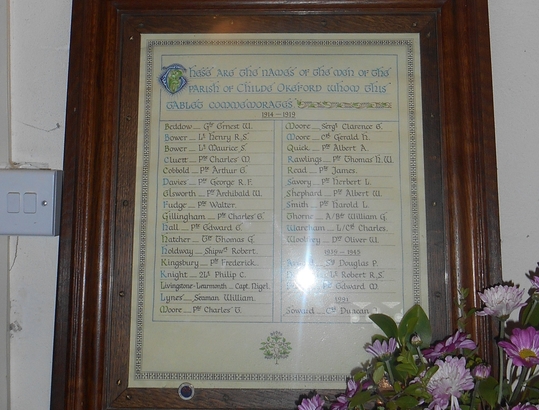 These are the names of the men of the
parish of Childe Okeford whom this
tablet commemorates
1914 – 1919
Beddow Gnr Ernest W.
Bower Lt Henry R.S.
Bower Lt Maurice S.
Cluett Pte Charles W
Cobbold Pte Arthur G.
Davies Pte George R.F.
Elsworth Pte Archibald W.
Fudge Pte Walter.
Gillingham Pte Charles G.
Hall Pte Edward G.
Hatcher Thomas G.
Holdway Shipwt Robert.
Kingsbury Pte Frederick.
Knight 2Lt Philip C.
Livingstone-Learmonth Capt. Nigel.
Lynes Seaman William.
Moore Pte Charles G.
Moore Sergt Clarence G.
Moore Gerald H.
Quick Pte Albert A.
Rawlings Pte Thomas H.W.
Read Pte James.
Savory Pte Herbert L.
Shephard Pte Albert W.
Smith Pte Harold L.
Thorne A/Br William G.
Wareham L/Cl Charles.
Oliver W.
1939 – 1945
Douglas P.
Lt Robert R.S.
Edward W.
1991
Soward Duncan